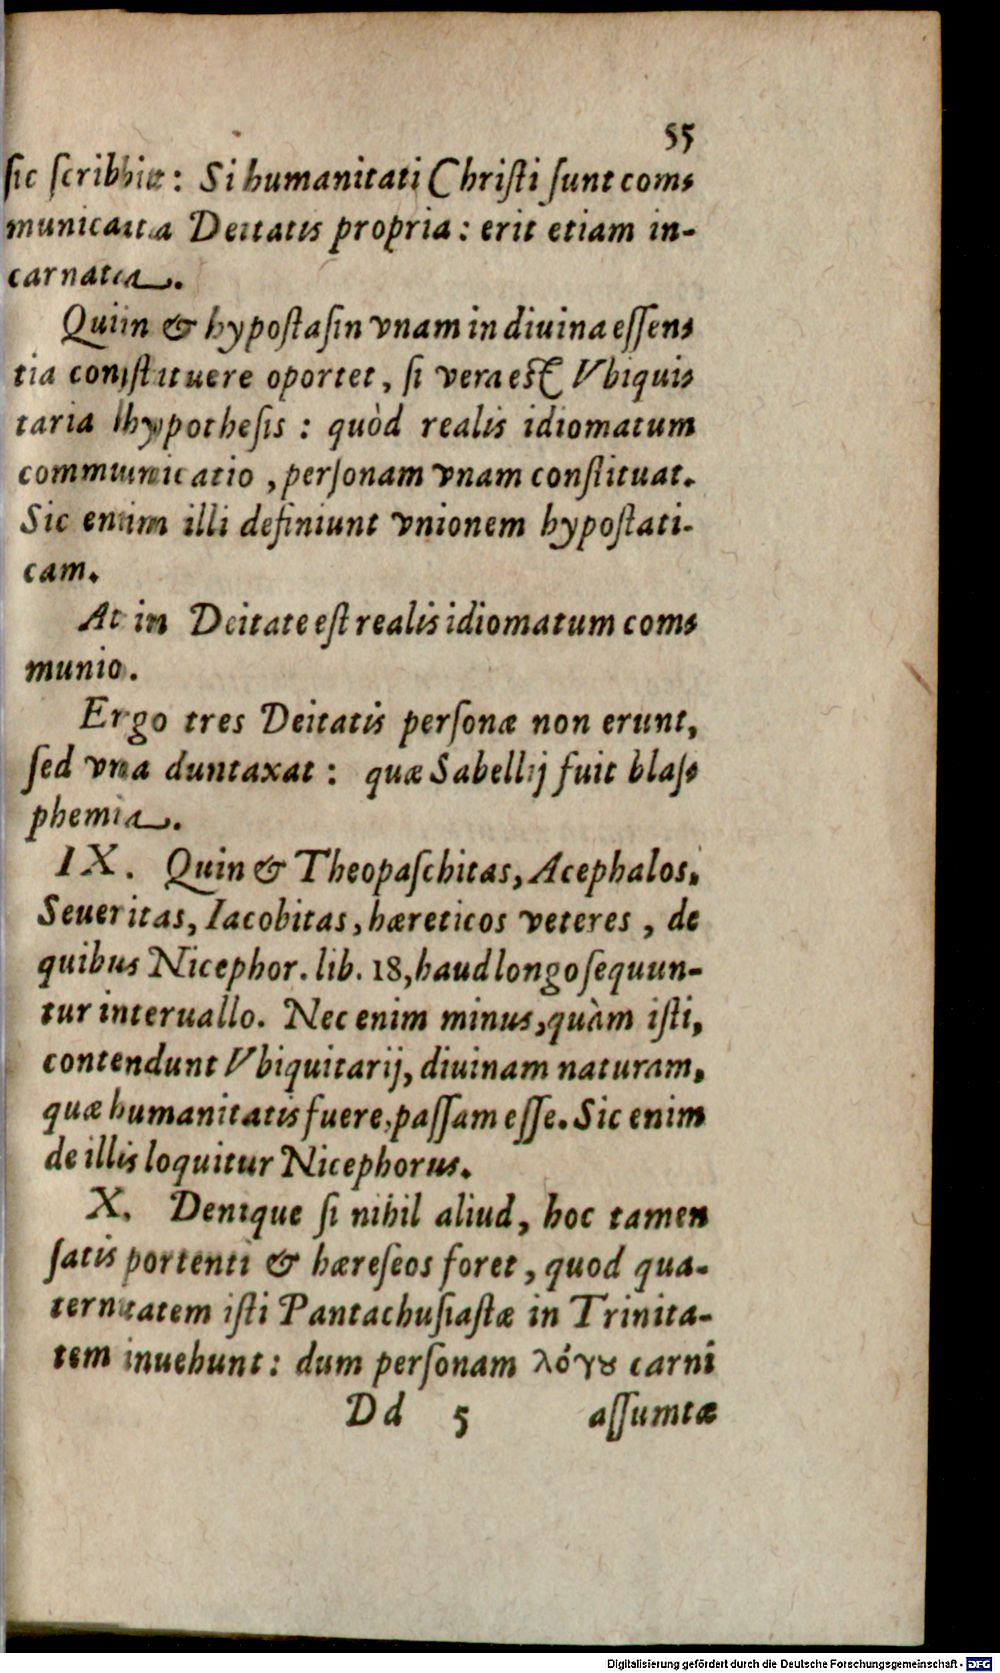 55
sic scribbit: Si humanitati Christi sunt com-
municata Deitatis propria: erit etiam in-
carnata.
Quin & hypostasin vnam in diuina essen-
tia constituere oportet, si vera est Vbiqui-
taria hypothesis: quòd realis idiomatum
communicatio, personam vnam constituat.
Sic enim illi definiunt vnionem hypostati-
cam.
At in Deitate est realis idiomatum com-
munio.
Ergo tres Deitatis personæ non erunt,
sed vna duntaxat: quæ Sabellij fuit blas-
phemia.
IX. Quin & Theopaschitas, Acephalos,
Seueritas, Iacobitas, hæreticos veteres, de
quibus Nicephor. lib. 18, haud longo sequun-
tur interuallo. Nec enim minus, quàm isti,
contendunt Vbiquitarij, diuinam naturam,
quæ humanitatis fuere, passam esse. Sic enim
de illis loquitur Nicephorus.
X. Denique si nihil aliud, hoc tamen
satis portenti & hæreseos foret, quod qua-
ternitatem isti Pantachusiastæ in Trinita-
tem inuehunt: dum personam λόγȣ carni
Dd 5 assumtæ
Digitalisierung gefördert durch die Deutsche Forschungsgemeinschaft - DFG